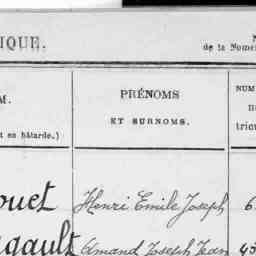 IQUE. N
de la Nomen
M. PRÉNOMS NUM
ET SURNOMS. n
t en bâtarde.) tricu
ouet Henri Emile Joseph 6
agault Amand Joseph Jean 43